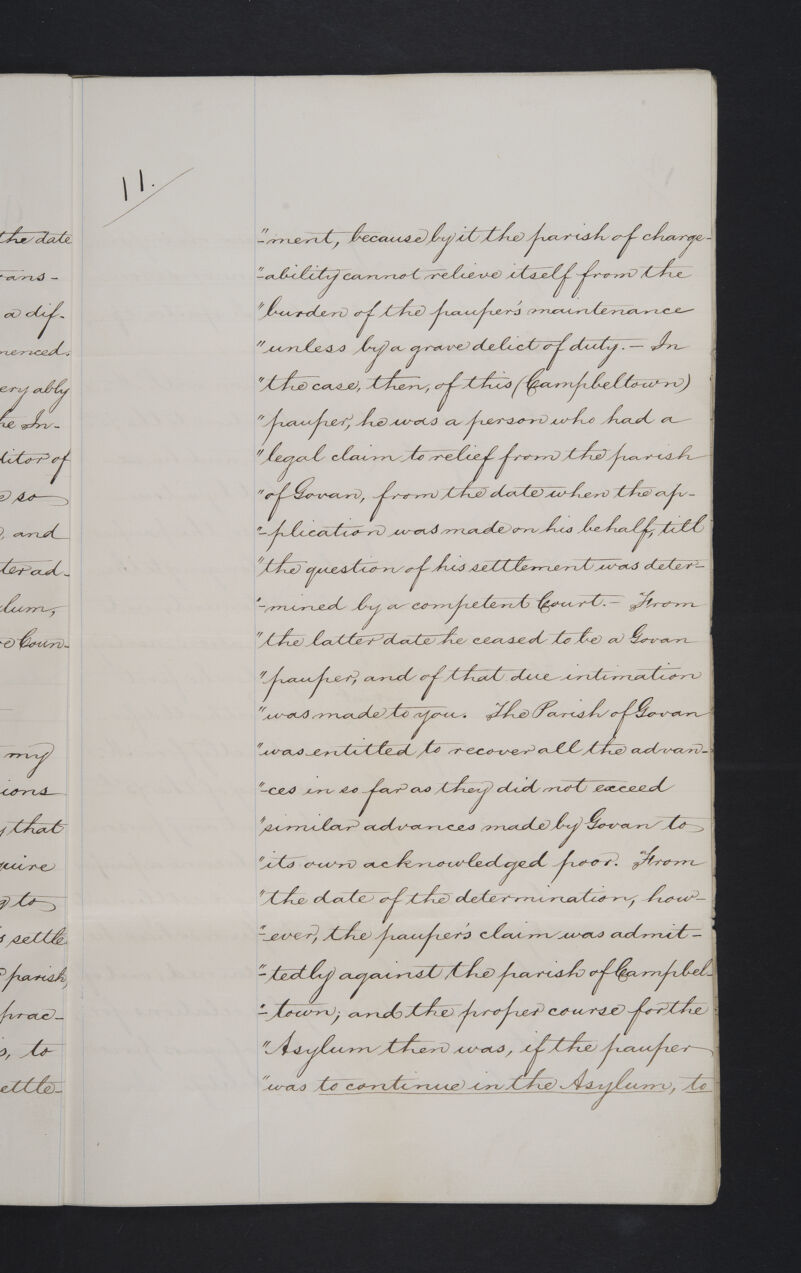 the date
rans-
a dif-
menced.
ery ably
he In-
ditor of
e so
, and
ter ad-
lum,
e Coun-
my
ions
, that
quire
g to
s settle
parish,
prac-
s, to
ettle-
11.
"-ment, because by it the parish of charge-
"-ability cannot relieve itself from the
"burden of the pauper's maintenance
"unless by a grave delict of duty. – In
"the case, then, of this (Campbeltown)
"pauper, he was a person who had a
"legal claim to relief from the parish
"of Govan, from the date when the ap-
"-plication was made on his behalf, till
"the question of his settlement was deter-
"-mined by a competent Court. – From
"the latter date he ceased to be a Govan
"pauper, and of that due intimation
"was made to you. The Parish of Govan
"was entitled to recover all the advan-
"-ces in so far as they did not exceed
"similar advances made by Govan to
"its own acknowledged poor. From
"the date of the determination, how-
"-ever, the pauper's claim was admit-
"-tedly against the parish of Campbel-
"-town; and the proper course for the
"Asylum then was, if the pauper
"was to continue in the Asylum, to